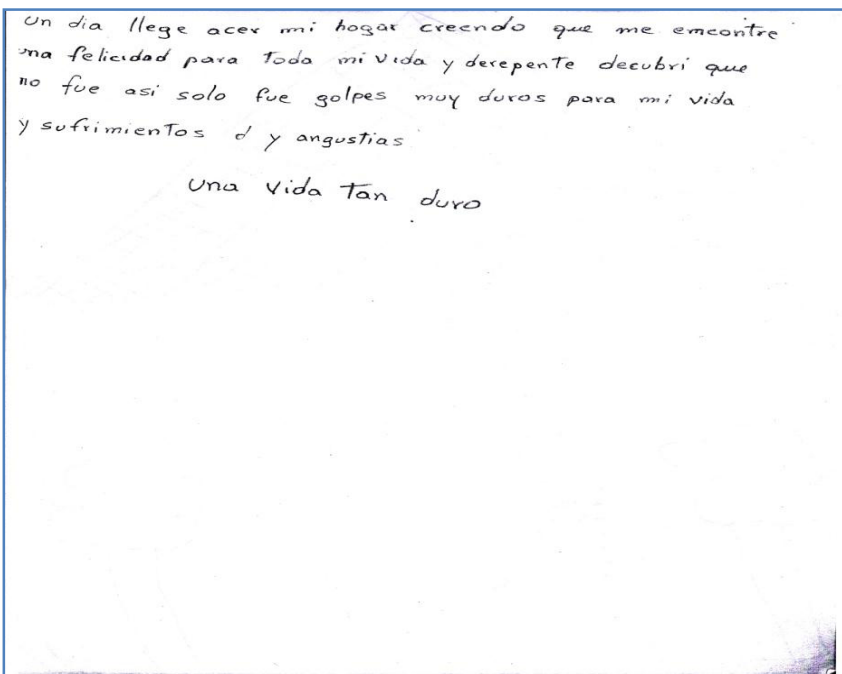 Un dia llege acer mi hogar creendo que me emcontre
una felicidad para toda mi vida y derepente decubri que
no fue asi solo fue golpes muy duros para mi vida
y sufrimientos d y angustias
una vida tan duro